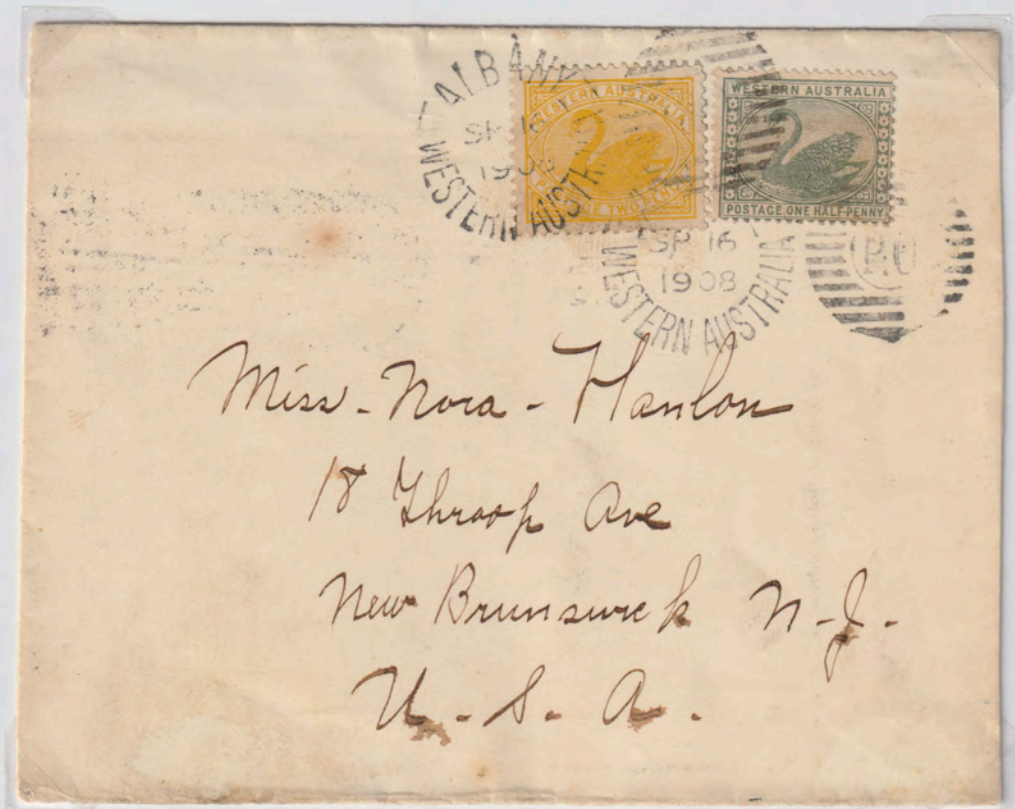 ALBANY
SP 16
1908
WESTERN AUSTR
WESTERN AUSTRALIA
POSTAGE TWO PENCE
WESTERN AUSTRALIA
POSTAGE ONE HALF-PENNY
SP 16
1908
WESTERN AUSTRALIA
P.O
Miss - Nora - Hanlon
18 Throop Ave
New Brunswick N-J-
U. S. A.